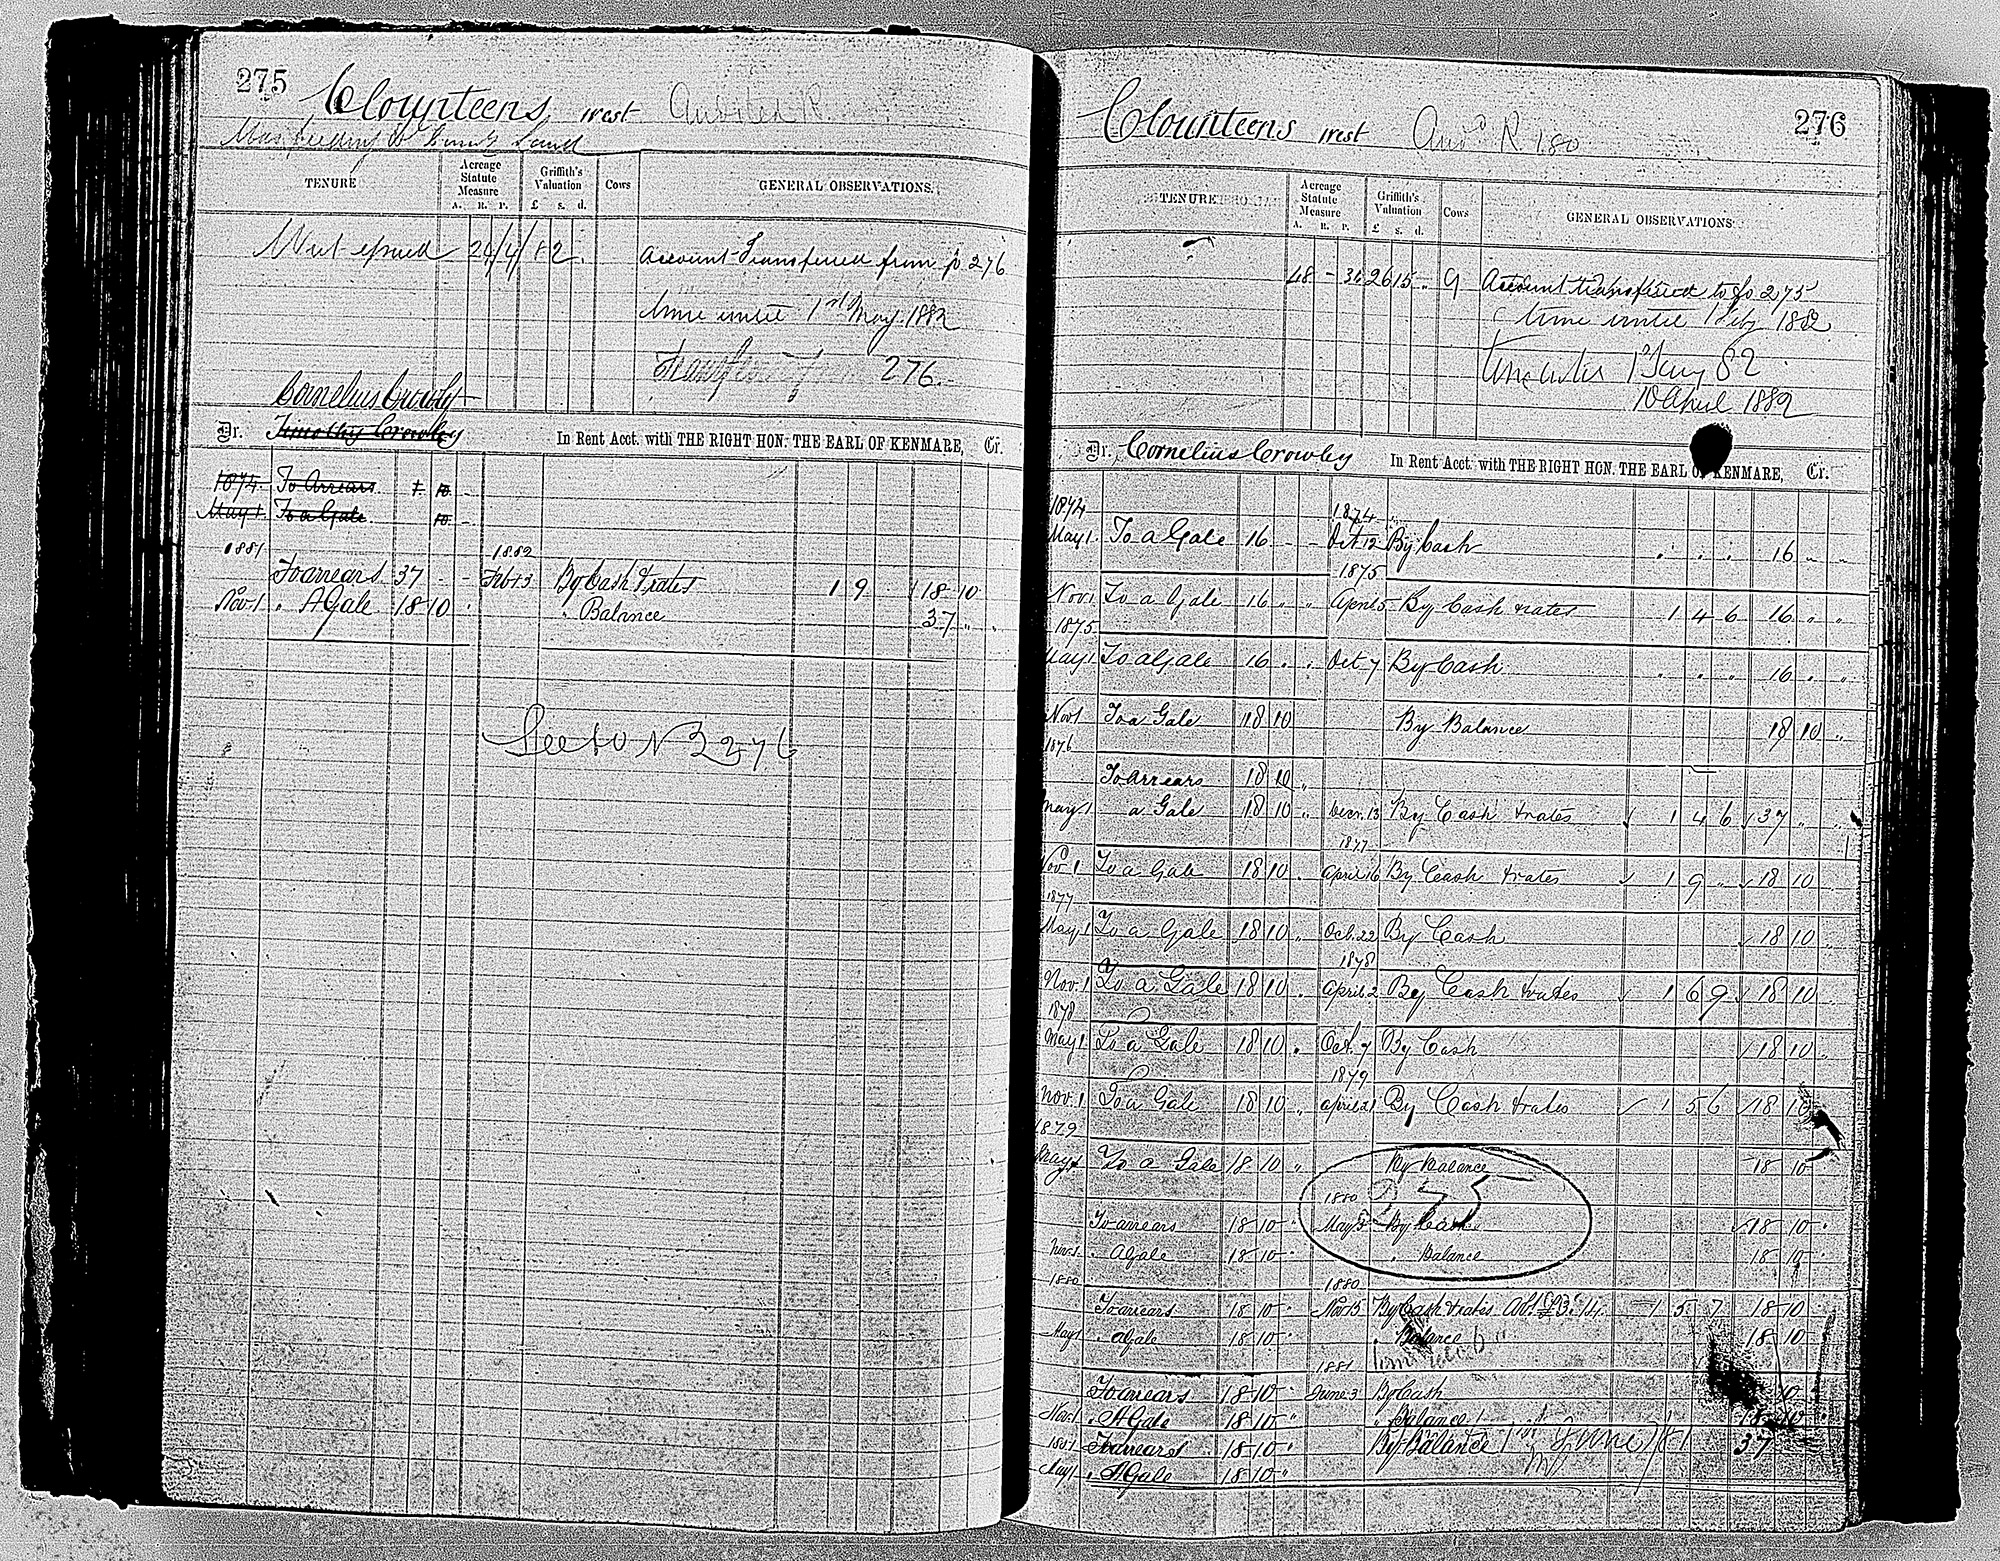 275
Clounteens west
Land
TENURE
Acreage Statute Measure
A. R. P.
Griffith's Valuation
£ s. d.
Cows
GENERAL OBSERVATIONS.
24/4/82
Account Transferred from fo 276
time until 1st May 1882
276
Cornelius Crowley
Dr. Timothy Crowley In Rent Acct. with THE RIGHT HON. THE EARL OF KENMARE, Cr.
1874 To Arrears 1 10 -
May 1 To a Gale 10 -
1881 1882
To arrears 37 - - Feb 13 By Cash & rates 1 9 18 10
Nov 1 " A Gale 18 10 " " Balance 37 " "
See fo No 276
276
Clounteens west
TENURE
Acreage Statute Measure
A. R. P.
Griffith's Valuation
£ s. d.
Cows
GENERAL OBSERVATIONS.
48 - 34 26 15 " 9 Account transferred to fo 275
time until 1 Feby 1882
10 April 1882
Dr. Cornelius Crowley In Rent Acct. with THE RIGHT HON. THE EARL OF KENMARE, Cr.
1874 1874
May 1 To a Gale 16 - - Oct 12 By Cash 16 " "
1875
Nov 1 To a Gale 16 " " April 5 By Cash & rates 1 4 6 16 " "
1875
May 1 To a Gale 16 " " Oct 7 By Cash 16 " "
Nov 1 To a Gale 18 10 By Balance 18 10 "
1876
To arrears 18 10 "
May 1 a Gale 18 10 " Decr. 13 By Cash & rates 1 4 6 37 " "
1877
Nov 1 To a Gale 18 10 " April 16 By Cash & rates 1 9 " 18 10
1877
May 1 To a Gale 18 10 " Oct. 22 By Cash 18 10
1878
Nov. 1 To a Gale 18 10 " April 2 By Cash & rates 1 6 9 18 10
1878
May 1 To a Gale 18 10 " Oct. 7 By Cash 18 10 "
1879
Nov. 1 To a Gale 18 10 " April 21 By Cash & rates 1 5 6 18 10
1879
May 1 To a Gale 18 10 " By Balance 18 10
1880
To arrears 18 10 " May By Cash 18 10 "
Nov 1 " A Gale 18 10 " " Balance 18 10
1880 1880
To arrears 18 10 " Nov 5 By Cash & rates 1 5 7 18 10
May 1 " a Gale 18 10 " " Balance 18 10
1881
To arrears 18 10 " June 3 By Cash 10
Nov 1 " A Gale 18 10 " " Balance 18 10 "
1881 To arrears 18 10 " By Balance 37
May 1 " A Gale 18 10 "